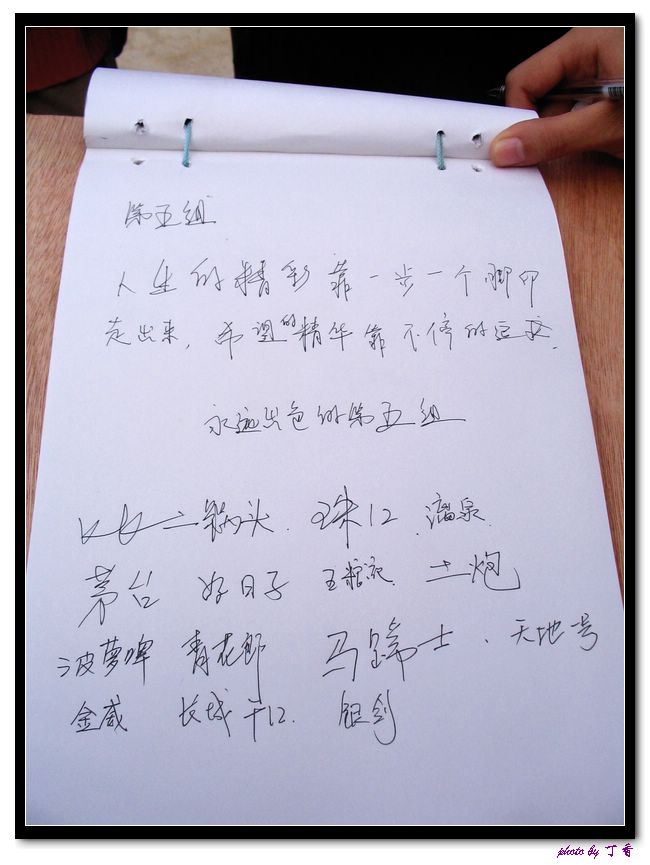 第五组
人生的精彩靠一步一个脚印
走出来,希望的精华靠不停的追求.
永远出色的第五组
二锅头. 珠江. 温泉.
茅台 好日子 五粮液. 土炮
菠萝啤 青花郎 马蹄士、天地号
金威 长城干红. 银剑
photo by 丁香